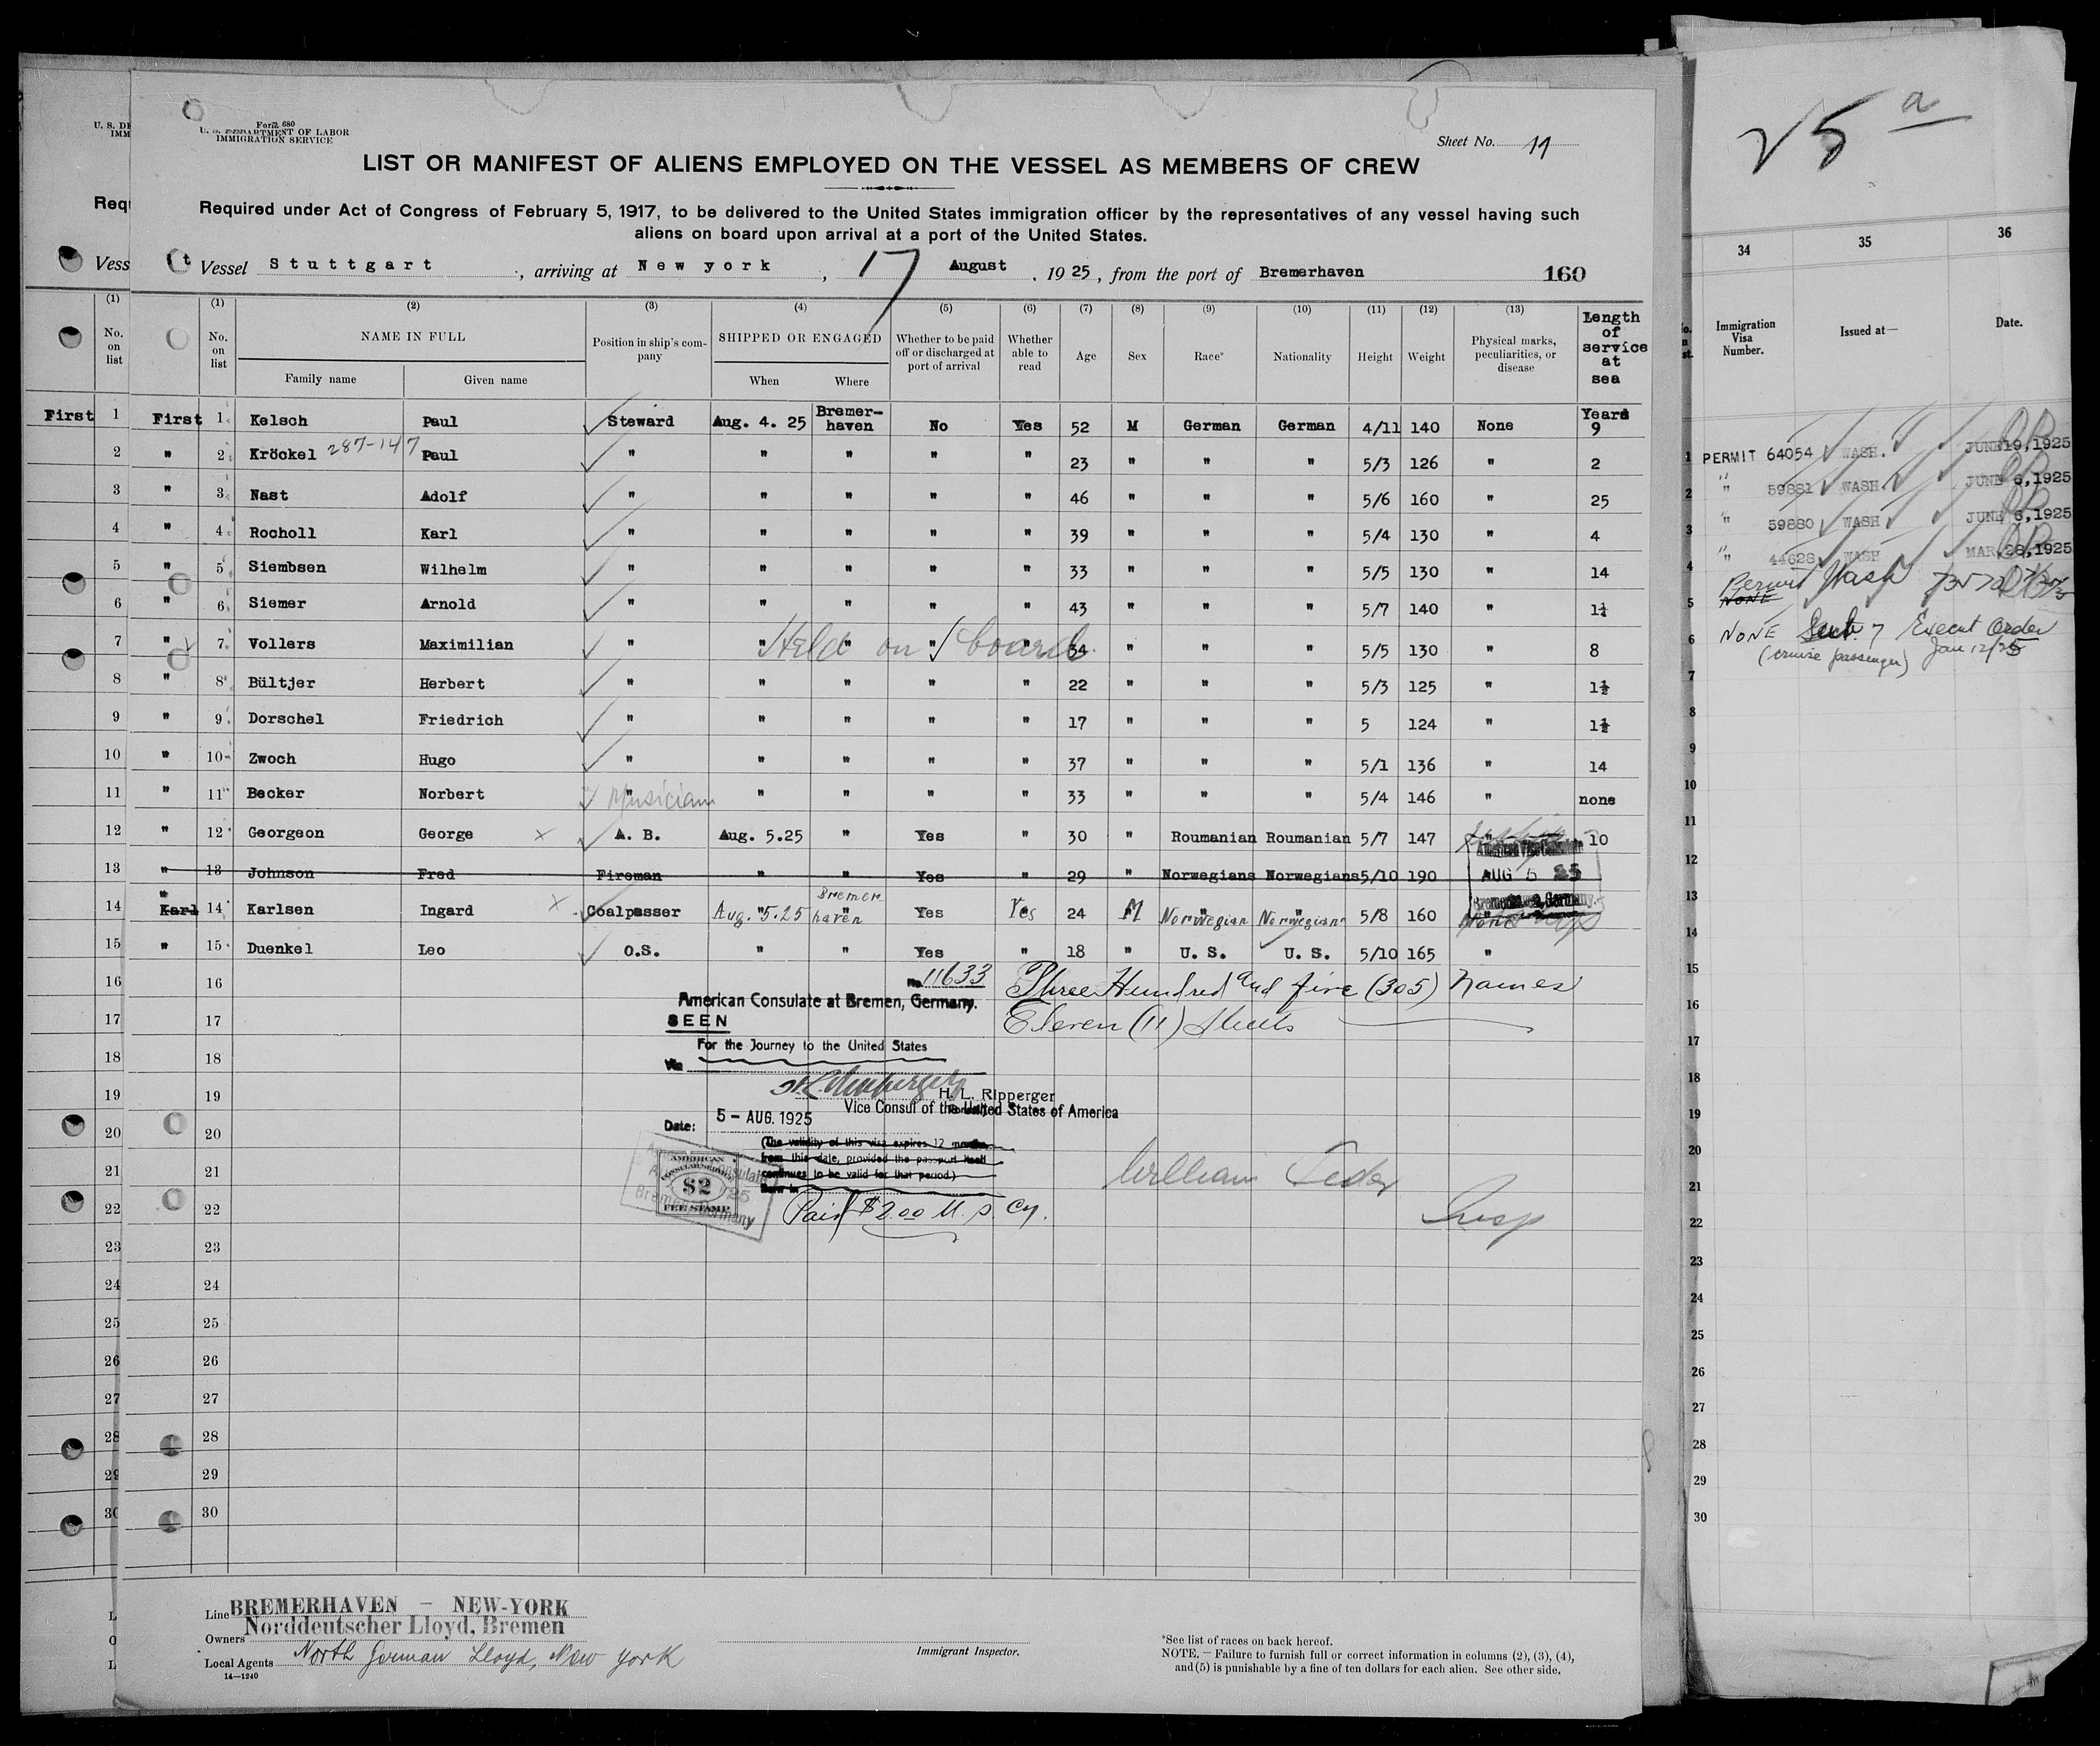 Form 680
U. S. DEPARTMENT OF LABOR
IMMIGRATION SERVICE
Sheet No. 11
LIST OR MANIFEST OF ALIENS EMPLOYED ON THE VESSEL AS MEMBERS OF CREW
Required under Act of Congress of February 5, 1917, to be delivered to the United States immigration officer by the representatives of any vessel having such
aliens on board upon arrival at a port of the United States.
Vessel Stuttgart, arriving at New york, 17 August, 1925, from the port of Bremerhaven 160
(1) (2) (3) (4) (5) (6) (7) (8) (9) (10) (11) (12) (13)
No. on list NAME IN FULL Family name Given name Position in ship's company SHIPPED OR ENGAGED When Where Whether to be paid off or discharged at port of arrival Whether able to read Age Sex Race* Nationality Height Weight Physical marks, peculiarities, or disease Length of service at sea
First 1 Kelsch Paul Steward Aug. 4. 25 Bremerhaven No Yes 52 M German German 4/11 140 None Years 9
" 2 Kröckel 287-147 Paul " " " " " 23 " " " 5/3 126 " 2
" 3 Nast Adolf " " " " " 46 " " " 5/6 160 " 25
" 4 Rocholl Karl " " " " " 39 " " " 5/4 130 " 4
" 5 Siembsen Wilhelm " " " " " 33 " " " 5/5 130 " 14
" 6 Siemer Arnold " " " " " 43 " " " 5/7 140 " 1¼
" 7 Vollers Maximilian " " " " " 34 " " " 5/5 130 " 8
Held on board
" 8 Bültjer Herbert " " " " " 22 " " " 5/3 125 " 1½
" 9 Dorschel Friedrich " " " " " 17 " " " 5 124 " 1½
" 10 Zwoch Hugo " " " " " 37 " " " 5/1 136 " 14
" 11 Becker Norbert " Musician " " " " 33 " " " 5/4 146 " none
" 12 Georgeon George x A. B. Aug. 5.25 " Yes " 30 " Roumanian Roumanian 5/7 147 " 10
" 13 Johnson Fred Fireman " " Yes " 29 " Norwegians Norwegians 5/10 190
AUG 5 25
Bremerhaven, Germany.
" Karl 14 Karlsen Ingard x Coalpasser Aug. 5.25 Bremerhaven Yes Yes 24 M Norwegian Norwegian 5/8 160 None
" 15 Duenkel Leo O.S. " " Yes " 18 " U. S. U. S. 5/10 165 "
16
No. 11633 Three Hundred and five (305) names
American Consulate at Bremen, Germany.
17 SEEN Eleven (11) sheets
18 For the Journey to the United States
Via
19 H. L. Ripperger
Vice Consul of the United States of America
20 Date: 5 - AUG. 1925
(The validity of this visa expires 12 months
from this date, provided the passport itself
21 continues to be valid for that period.)
AMERICAN
CONSULAR SERVICE
$2
FEE STAMP
William
22 Paid $2.00 U. S. Cy. Insp
23
24
25
26
27
28
29
30
Line BREMERHAVEN - NEW-YORK
Owners Norddeutscher Lloyd, Bremen
Local Agents North German Lloyd, New York
14—1240
Immigrant Inspector.
*See list of races on back hereof.
NOTE. – Failure to furnish full or correct information in columns (2), (3), (4),
and (5) is punishable by a fine of ten dollars for each alien. See other side.
U. S. DE
IMM
Requ
Vess
(1)
No.
on
list
First 1
2
3
4
5
6
7
8
9
10
11
12
13
14
15
16
17
18
19
20
21
22
23
24
25
26
27
28
29
30
L
O
L
25 a
34 35 36
Immigration Visa Number. Issued at— Date.
1 PERMIT 64054 WASH. JUNE 19, 1925
2 " 59881 WASH. JUNE 6, 1925
3 " 59880 WASH JUNE 6, 1925
4 " 44628 WASH MAR, 28, 1925
5 Permit Wash
NONE
6 NONE Sect. 7 Execut Order
(cruise passenger) Jan 12/25
7
8
9
10
11
12
13
14
15
16
17
18
19
20
21
22
23
24
25
26
27
28
29
30